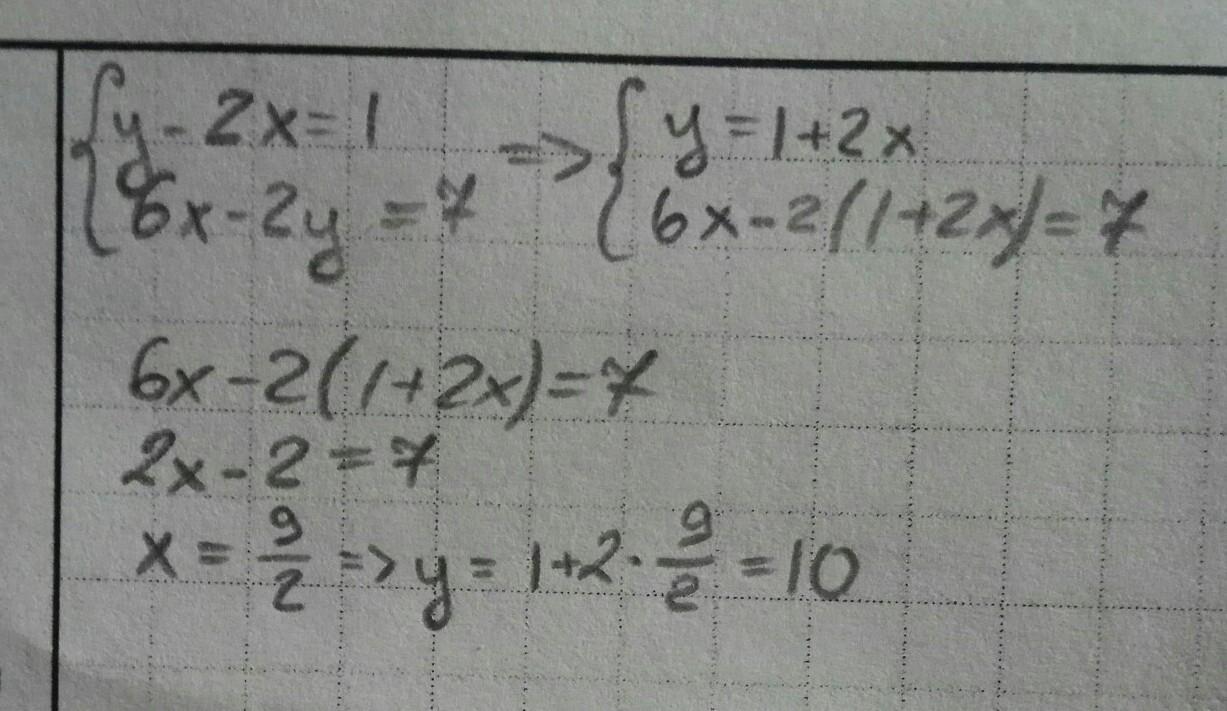 { y - 2x = 1 => { y = 1 + 2x
6x - 2y = 7 6x - 2(1+2x) = 7
6x - 2(1+2x) = 7
2x - 2 = 7
x = 9/2 => y = 1+2·9/2 = 10